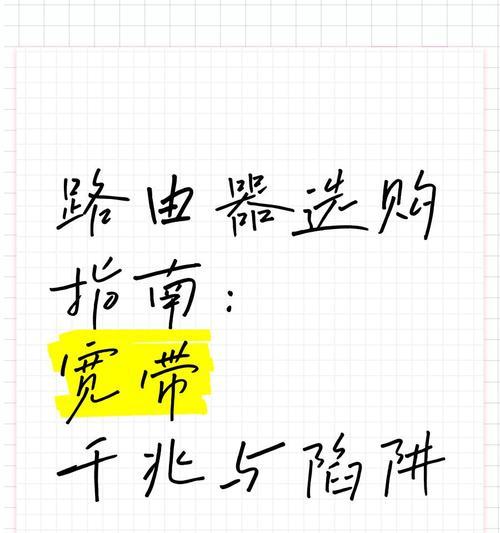 路由器选购
指南：
宽带
千兆与陷阱